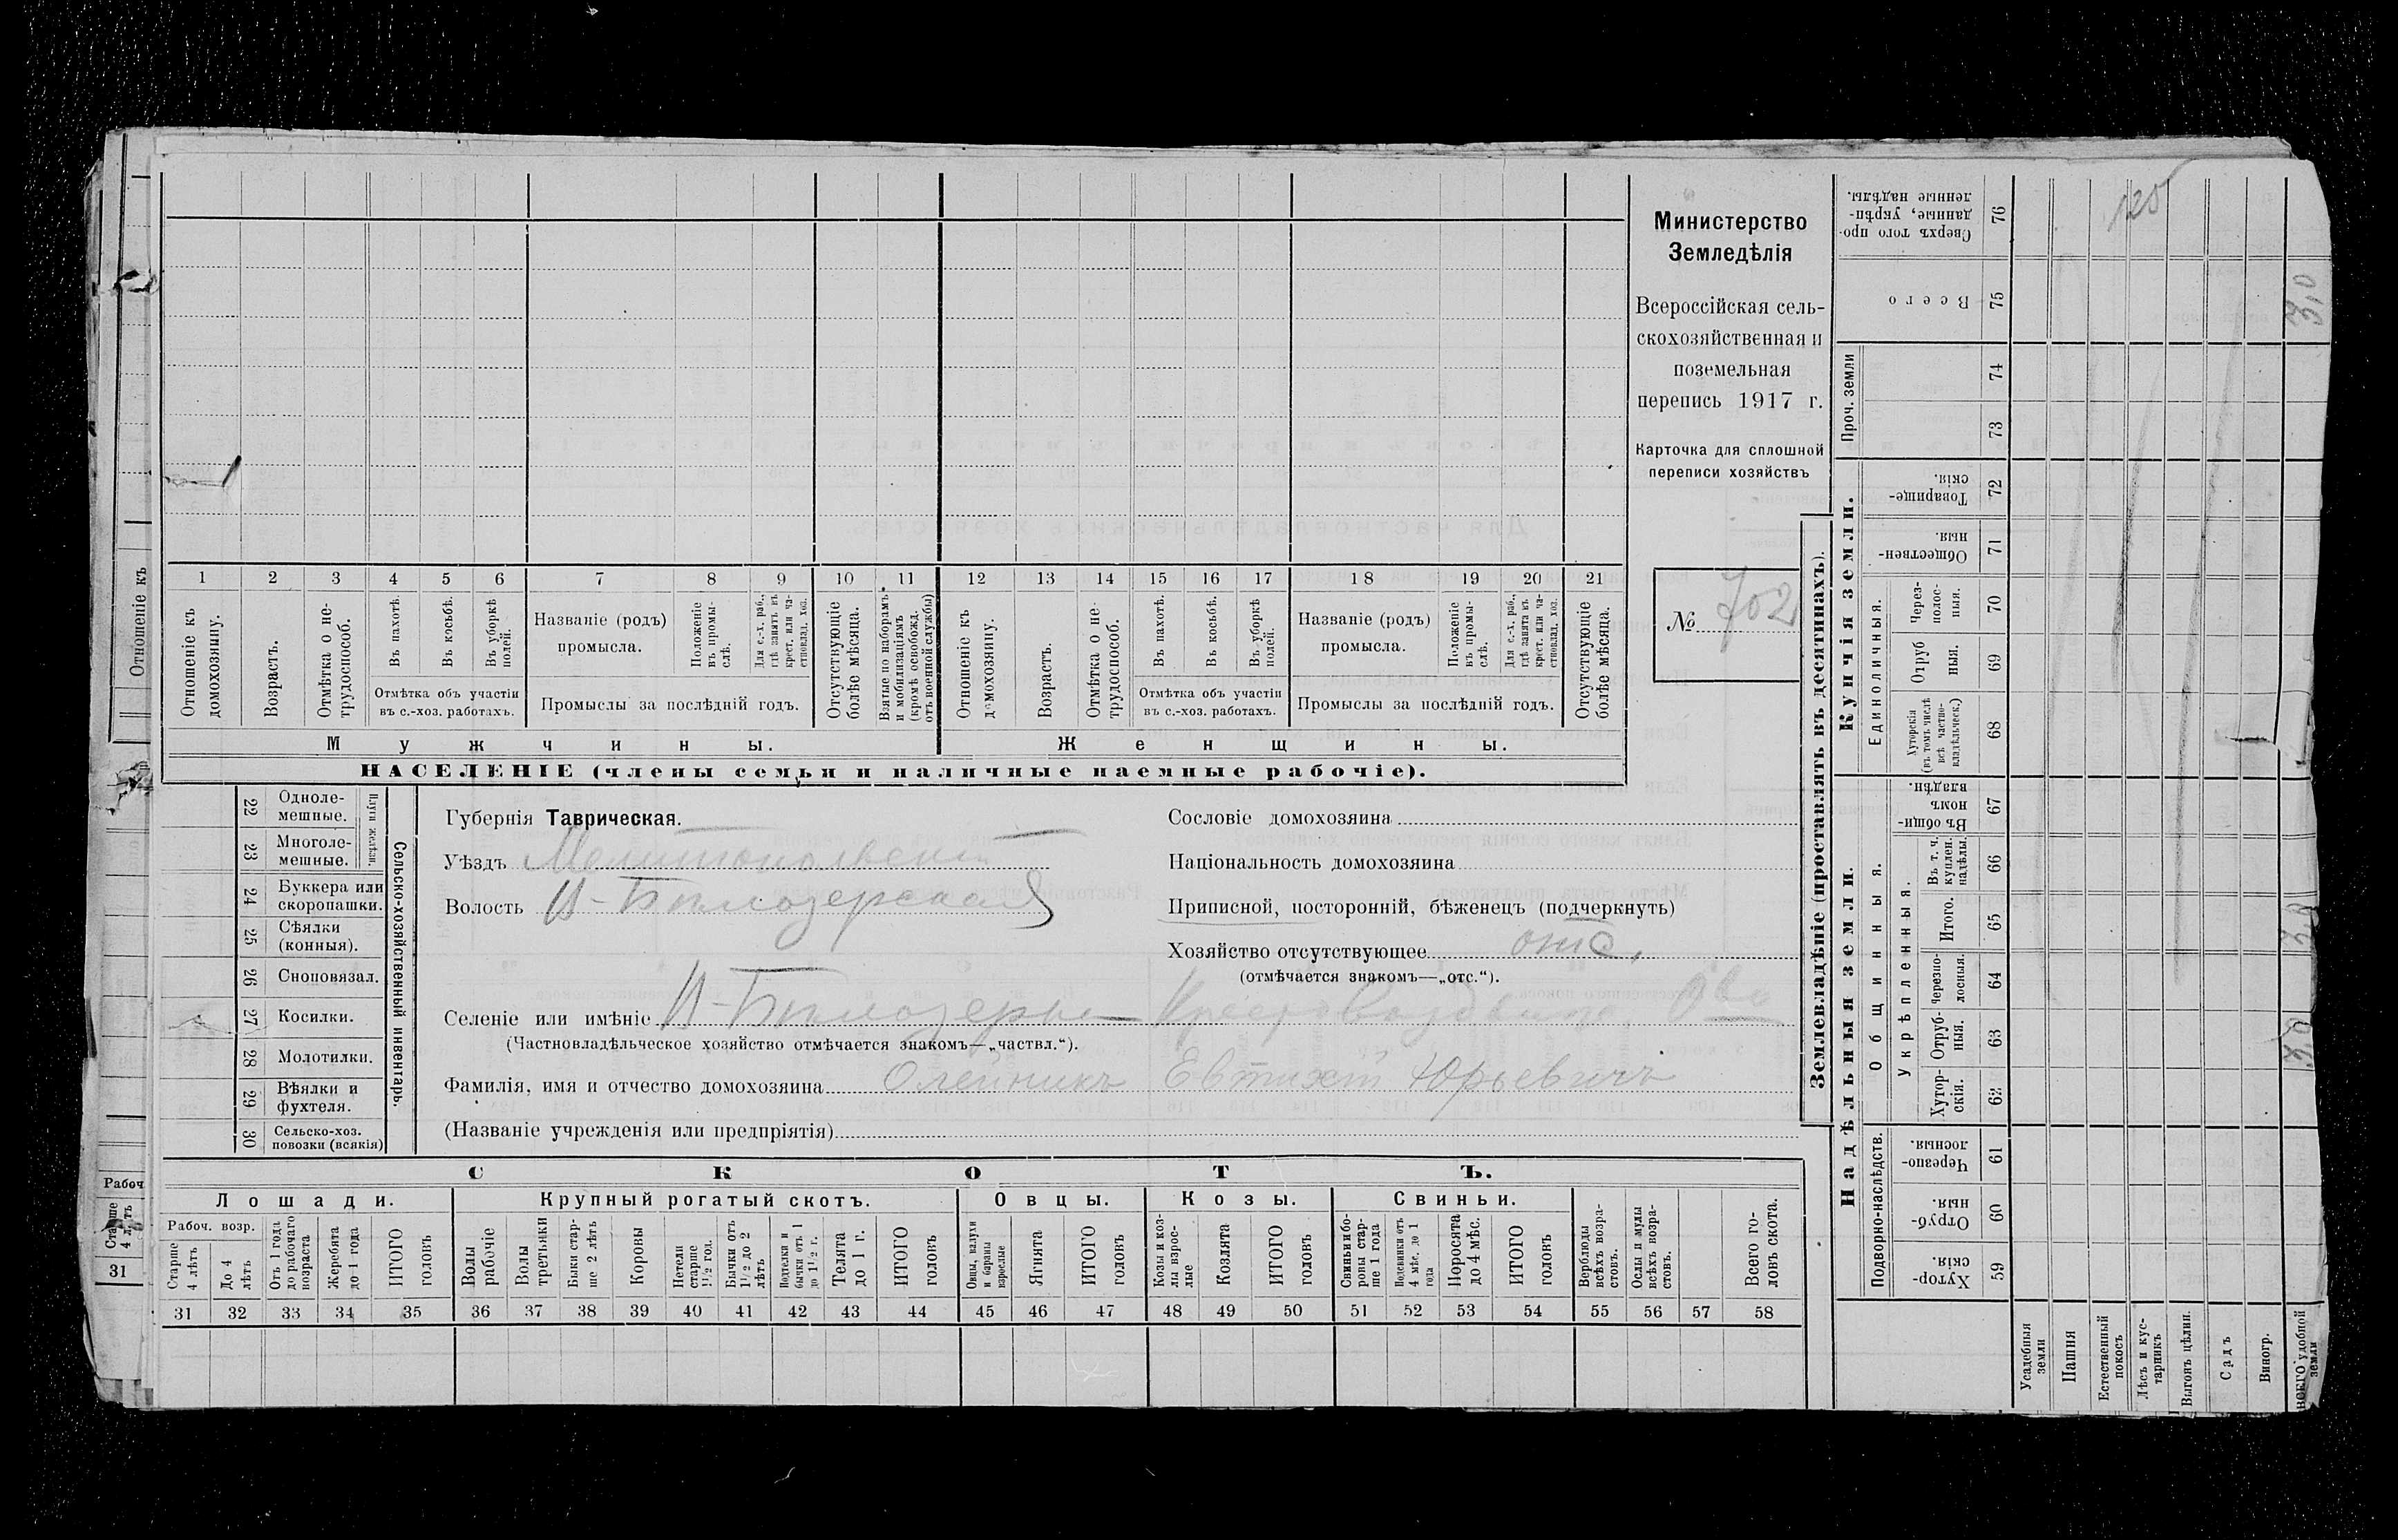 Министерство
Земледѣлія
Всероссійская сель-
скохозяйственная и
поземельная
перепись 1917 г.
Карточка для сплошной
переписи хозяйствъ
№ 702
1 2 3 4 5 6 7 8 9 10 11 12 13 14 15 16 17 18 19 20 21
Отношеніе къ домохозяину.
Возрастъ.
Отмѣтка о не-трудоспособ.
Въ пахотѣ.
Въ косьбѣ.
Въ уборкѣ полей.
Отмѣтка объ участіи
въ с.-хоз. работахъ.
Названіе (родъ)
промысла.
Положеніе въ промы-слѣ.
Для с.-х. раб., гдѣ занятъ въ крест. или ча-стновлад. хоз.
Промыслы за послѣдній годъ.
Отсутствующіе болѣе мѣсяца.
Взятые по наборамъ и мобилизаціямъ (кромѣ освобожд. отъ военной службы)
Отношеніе къ домохозяину.
Возрастъ.
Отмѣтка о не-трудоспособ.
Въ пахотѣ.
Въ косьбѣ.
Въ уборкѣ полей.
Отмѣтка объ участіи
въ с.-хоз. работахъ.
Названіе (родъ)
промысла.
Положеніе въ промы-слѣ.
Для с.-х. раб., гдѣ занята въ крест. или ча-стновлад. хоз.
Промыслы за послѣдній годъ.
Отсутствующіе болѣе мѣсяца.
Мужчины. Женщины.
НАСЕЛЕНІЕ (члены семьи и наличные наемные рабочіе).
Сельско-хозяйственный инвентарь.
Плуги желѣзн.
22 Одноле-мешные.
23 Многоле-мешные.
24 Буккера или скоропашки.
25 Сѣялки (конныя).
26 Сноповязал.
27 Косилки.
28 Молотилки.
29 Вѣялки и фухтеля.
30 Сельско-хоз. повозки (всякія)
Губернія Таврическая.
Уѣздъ Мелитопольскій
Волость Бѣлозерская
Селеніе или имѣніе Бѣлозерка
(Частновладѣльческое хозяйство отмѣчается знакомъ—„частвл.“).
Фамилія, имя и отчество домохозяина Олейникъ Евтихій Юрьевичъ
(Названіе учрежденія или предпріятія)
Сословіе домохозяина
Національность домохозяина
Приписной, посторонній, бѣженецъ (подчеркнуть)
Хозяйство отсутствующее отс.
(отмѣчается знакомъ—„отс.“).
СКОТЪ.
Лошади. Крупный рогатый скотъ. Овцы. Козы. Свиньи.
Рабоч. возр.
Старше 4 лѣтъ
До 4 лѣтъ
Отъ 1 года до рабочаго возраста
Жеребята до 1 года
ИТОГО головъ
Волы рабочіе
Волы третьяки
Быки стар-ше 2 лѣтъ
Коровы
Нетели старше 1½ год.
Бычки отъ 1½ до 2 лѣтъ
Подтелки и бычки отъ 1 до 1½ г.
Телята до 1 г.
ИТОГО головъ
Овцы, валухи и бараны взрослые
Ягнята
ИТОГО головъ
Козы и коз-лы взрос-лые
Козлята
ИТОГО головъ
Свиньи и бо-ровы стар-ше 1 года
Подсвинки отъ 4 мѣс. до 1 года
Поросята до 4 мѣс.
ИТОГО головъ
Верблюды всѣхъ возра-стовъ.
Ослы и мулы всѣхъ возра-стовъ.
Всего го-ловъ скота.
31 32 33 34 35 36 37 38 39 40 41 42 43 44 45 46 47 48 49 50 51 52 53 54 55 56 57 58
Землевладѣніе (проставлять въ десятинахъ).
Надѣльныя земли.
Купчія земли.
Проч. земли
Подворно-наслѣдств.
Общинныя.
Укрѣпленныя.
Единоличныя.
76 Сверхъ того про-данные, укрѣп-ленные надѣлы.
75 Всего
74
73
72 Товарище-скія.
71 Обществен-ныя.
70 Через-полос-ныя.
69 Отруб-ныя.
68 Хуторскія (въ томъ числѣ всѣ частно-владѣльческ.)
67 Въ общи-номъ владѣн.
66 Въ т. ч. куплен. надѣлы.
65 Итого.
64 Черезпо-лосныя.
63 Отруб-ныя.
62 Хутор-скія.
61 Черезпо-лосныя.
60 Отруб-ныя.
59 Хутор-скія.
Усадебныя земли
Пашня
Естественный покосъ
Лѣсъ и кус-тарникъ
Выгонъ цѣлин.
Садъ
Виногр.
всего удобной земли
125
3,0
3,0
3,0
Отношеніе къ
Рабоч
Старше 4 лѣтъ
31